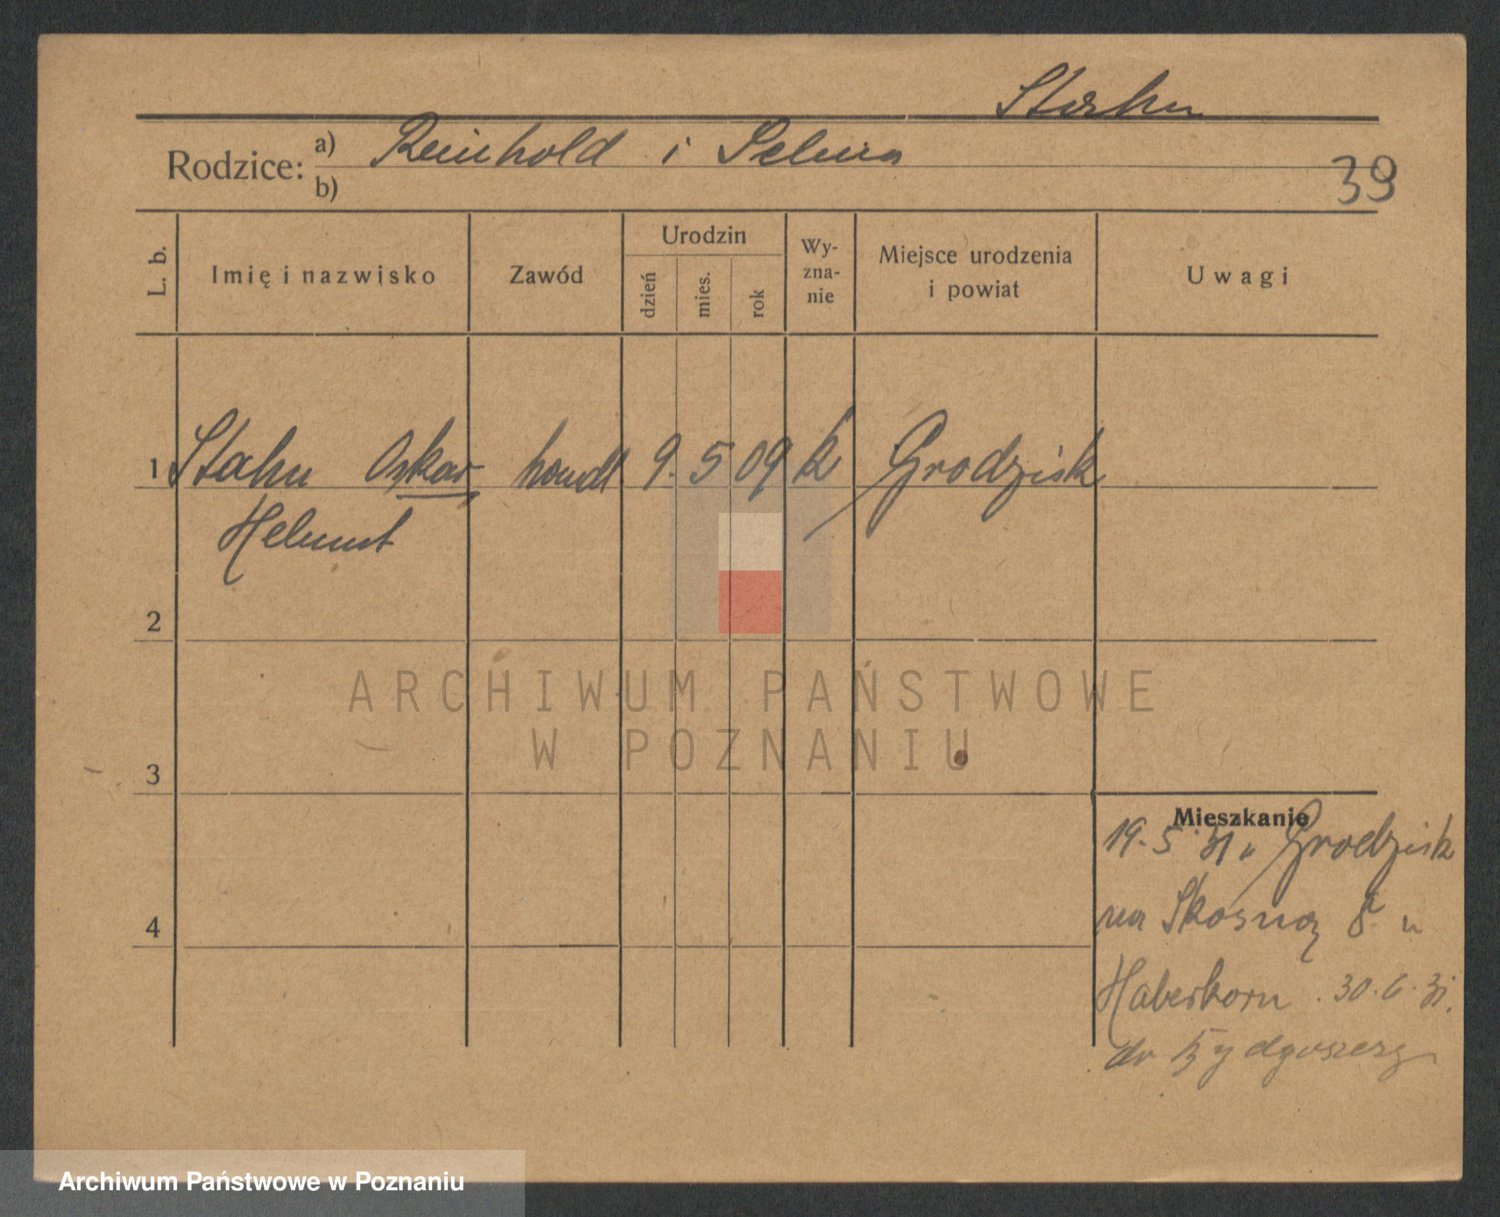 Rodzice: a) Reinhold i Selma
b)
39
L. b.
Imię i nazwisko
Zawód
Urodzin
dzień
mies.
rok
Wy-
zna-
nie
Miejsce urodzenia
i powiat
Uwagi
1 Stahn Oskar handl 9. 5 09 k Grodzisk
Helmut
2
ARCHIWUM PAŃSTWOWE
W POZNANIU
3
Mieszkanie
19.5 31 Grodzisk
na Skośną 8 u
4
Haberkorn . 30.6.31.
do Bydgoszczy
Archiwum Państwowe w Poznaniu